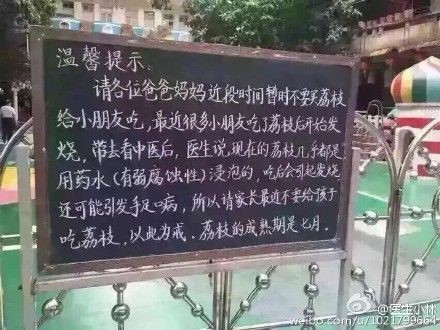 温馨提示:
请各位爸爸妈妈近段时间暂时不要买荔枝
给小朋友吃,最近很多小朋友吃了荔枝后开始发
烧,带去看中医后,医生说现在的荔枝几乎都是
用药水(有弱腐蚀性)浸泡的,吃后会引起发烧
还可能引发手足口病,所以请家长最近不要给孩子
吃荔枝,以此为戒.荔枝的成熟期是七月.
@医生小林
weibo.com/u/1021799664